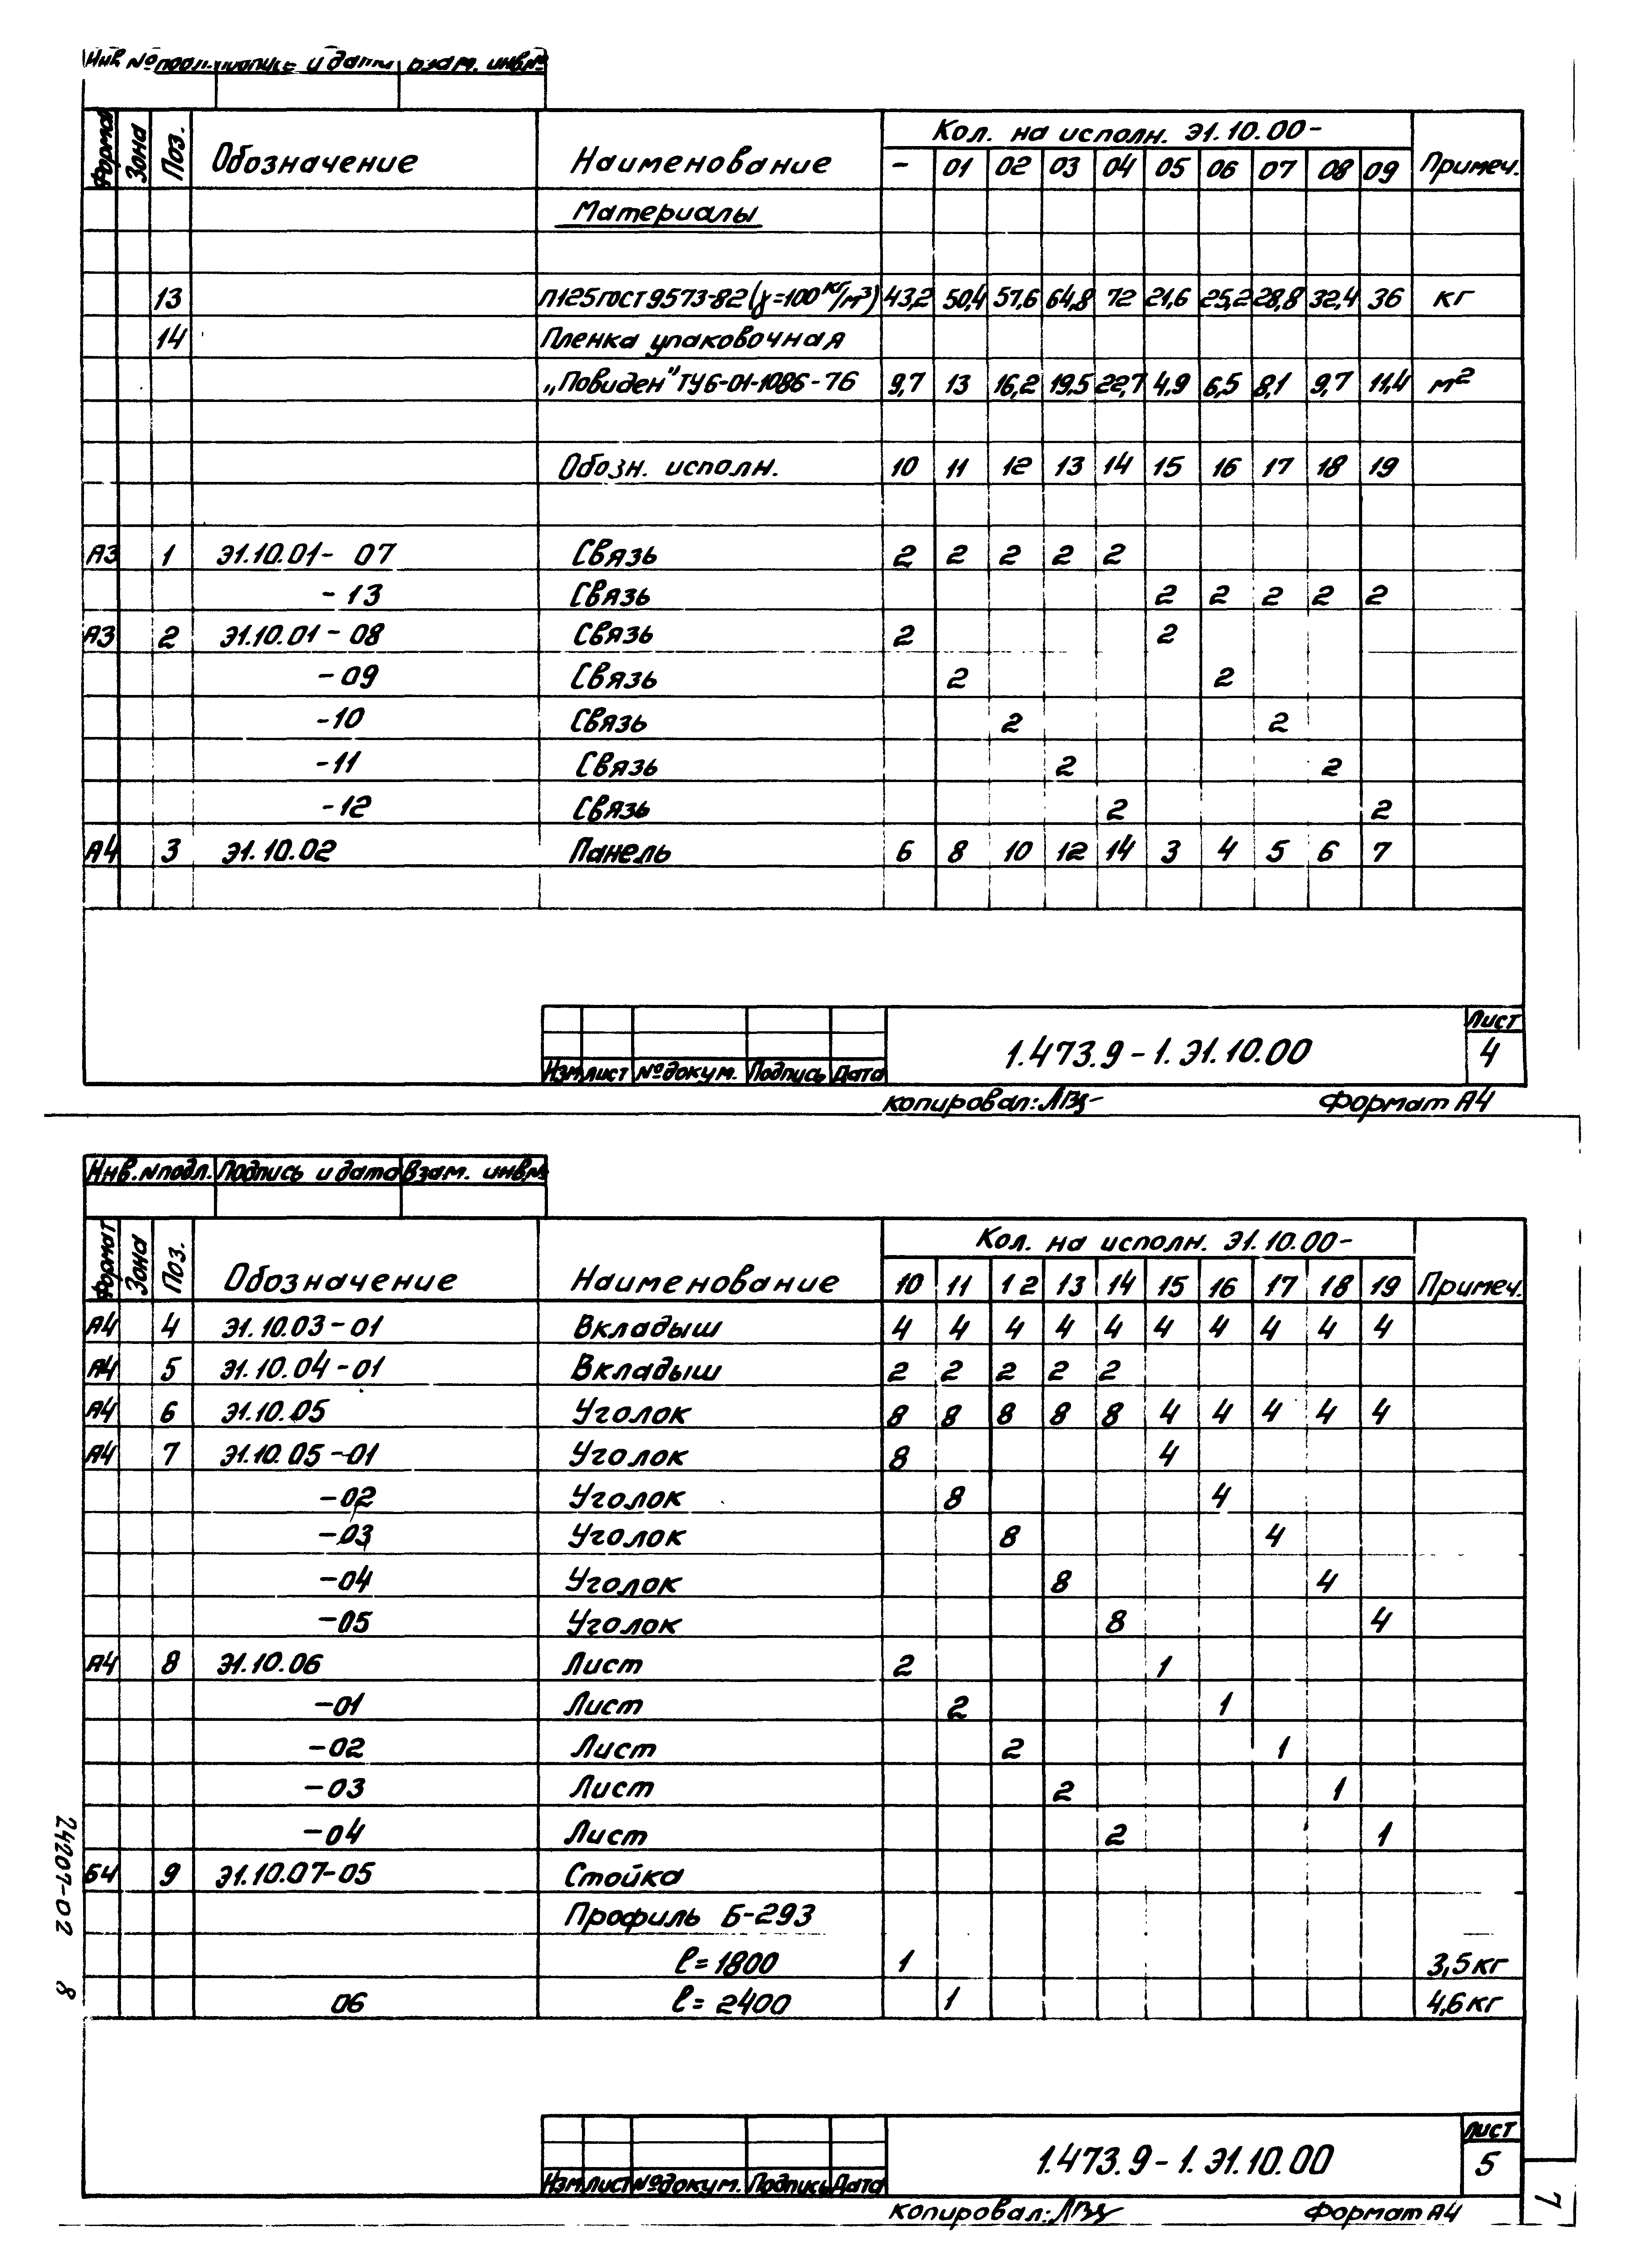 Инв №подл. Подпись и дата Взам. инв.№
Формат Зона Поз. Обозначение Наименование Кол. на исполн. Э1.10.00- Примеч.
- 01 02 03 04 05 06 07 08 09
Материалы
13 П125 ГОСТ 9573-82 (γ=100 кг/м³) 43,2 50,4 57,6 64,8 72 21,6 25,2 28,8 32,4 36 кг
14 Пленка упаковочная
„Повиден" ТУ6-01-1086-76 9,7 13 16,2 19,5 22,7 4,9 6,5 8,1 9,7 11,4 м²
Обозн. исполн. 10 11 12 13 14 15 16 17 18 19
А3 1 Э1.10.01- 07 Связь 2 2 2 2 2
- 13 Связь 2 2 2 2 2
А3 2 Э1.10.01 - 08 Связь 2 2
- 09 Связь 2 2
-10 Связь 2 2
-11 Связь 2 2
-12 Связь 2 2
А4 3 Э1.10.02 Панель 6 8 10 12 14 3 4 5 6 7
Изм Лист №докум. Подпись Дата 1.473.9 - 1. Э1.10.00 Лист 4
копировал: Формат А4
Инв.№подл. Подпись и дата Взам. инв.№
Формат Зона Поз. Обозначение Наименование Кол. на исполн. Э1.10.00- Примеч.
10 11 12 13 14 15 16 17 18 19
А4 4 Э1.10.03-01 Вкладыш 4 4 4 4 4 4 4 4 4 4
А4 5 Э1.10.04-01 Вкладыш 2 2 2 2 2
А4 6 Э1.10.05 Уголок 8 8 8 8 8 4 4 4 4 4
А4 7 Э1.10.05-01 Уголок 8 4
-02 Уголок 8 4
-03 Уголок 8 4
-04 Уголок 8 4
-05 Уголок 8 4
А4 8 Э1.10.06 Лист 2 1
-01 Лист 2 1
-02 Лист 2 1
-03 Лист 2 1
-04 Лист 2 1
Б4 9 Э1.10.07-05 Стойка
Профиль Б-293
ℓ=1800 1 3,5кг
06 ℓ= 2400 1 4,6кг
24207-02 8
Изм Лист №докум. Подпись Дата 1.473.9 - 1. Э1.10.00 Лист 5
копировал: Формат А4
7